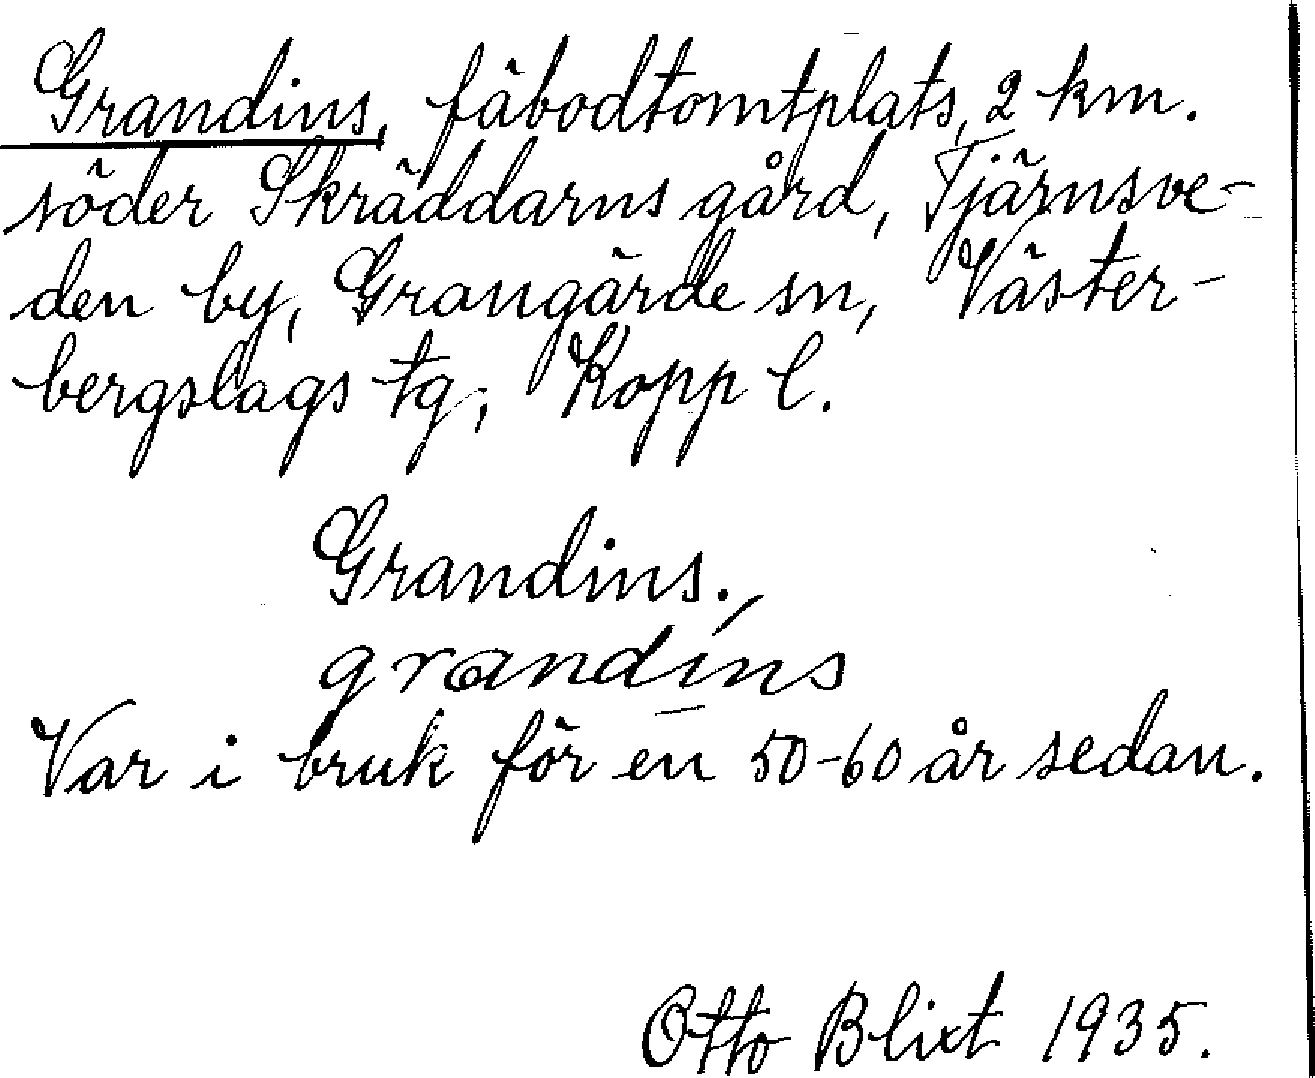 Grandins, fäbodtomtplats, 2 km.
söder Skräddarns gård, Tjärnsve-
den by, Grangärde sn, Väster-
bergslags tg, Kopp l.
Grandins.
grandins
Var i bruk för en 50-60 år sedan.
Otto Blixt 1935.